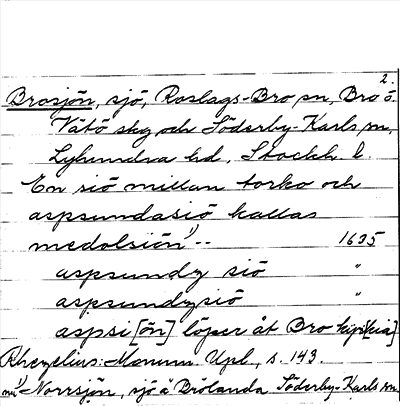 2.
Brosjön, sjö, Roslags-Bro sn, Bro ö.
Vätö skg och Söderby-Karls sn,
Lyhundra hd, Stockh. l.
En siö millan torko och
aspsundasiö kallas
medolsiön¹⁾-- 1635
aspsundy siö "
aspsundysiö "
aspsi[ön] löper åt Bro kip[kia]
Rhezelius: Monum. Upl., s. 143.
nu¹⁾ Norrsjön, sjö å Brölanda Söderby-Karls sn